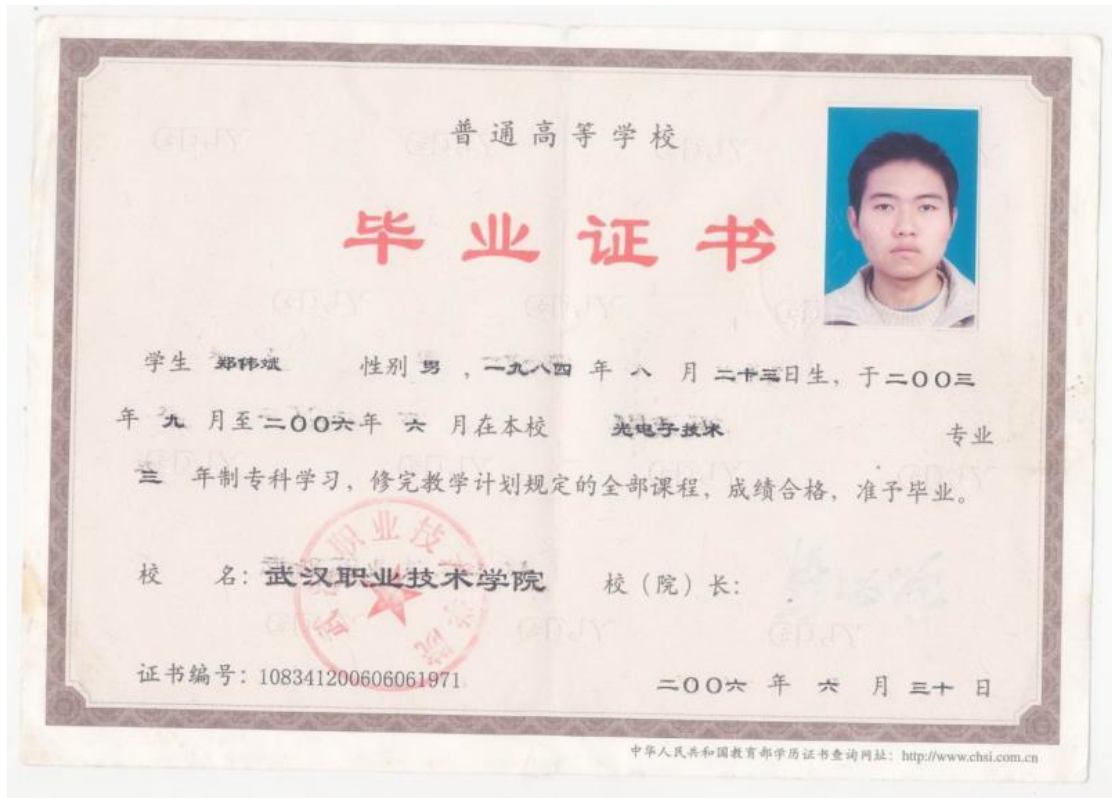 普通高等学校
毕业证书
学生 郑伟斌 性别 男 ,一九八四 年 八 月 二十三日生,于二〇〇三
年 九 月至二〇〇六年 六 月在本校 光电子技术 专业
三 年制专科学习,修完教学计划规定的全部课程,成绩合格,准予毕业。
校 名:武汉职业技术学院 校(院)长:
证书编号:108341200606061971 二〇〇六 年 六 月 三十 日
中华人民共和国教育部学历证书查询网址:http://www.chsi.com.cn